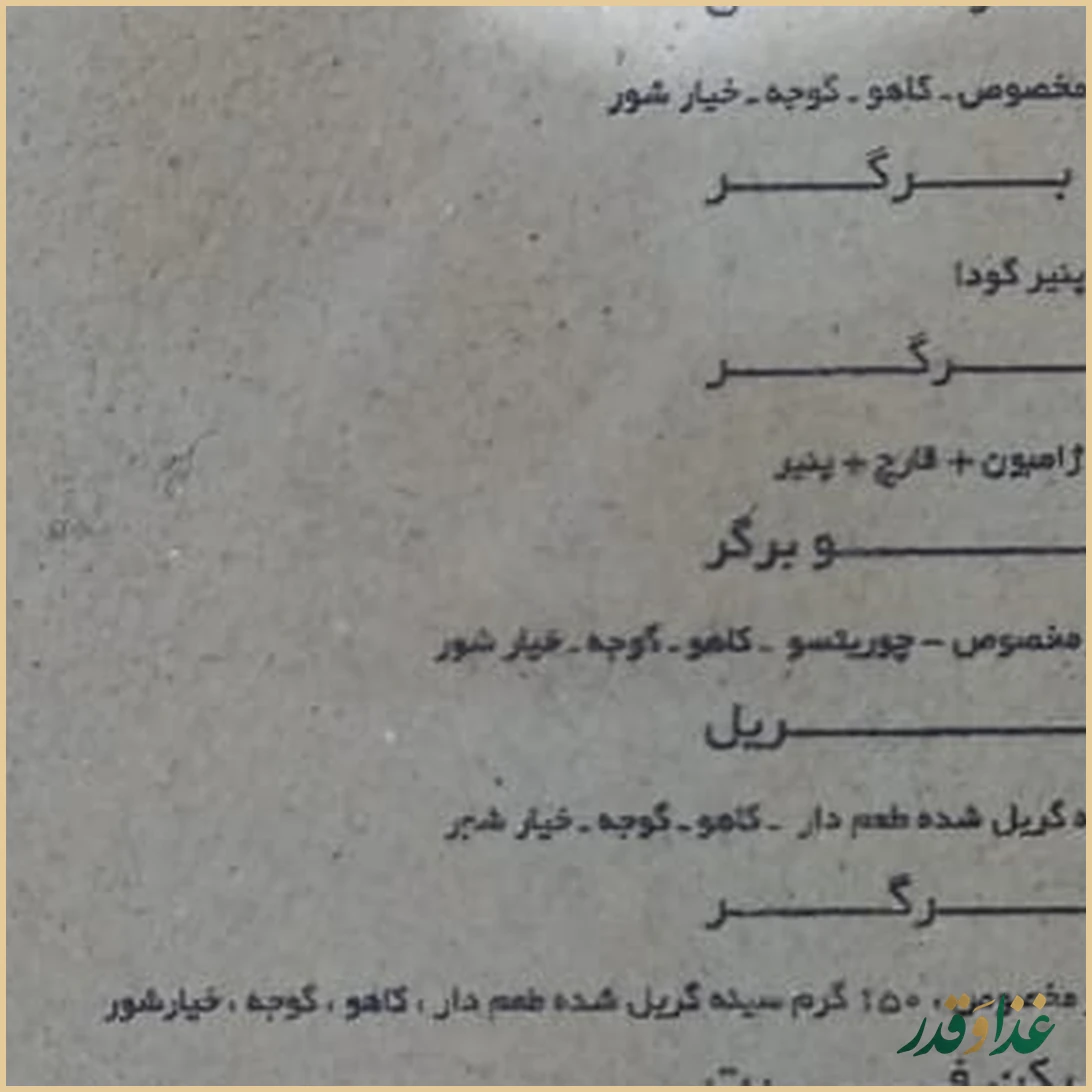 مخصوص ـ کاهو ـ گوجه ـ خیار شور
بـــرگـــر
پنیر گودا
ـــرگـــر
ژامبون + قارچ + پنیر
ـــو برگر
مخصوص – چوریتسو ـ کاهو ـ گوجه ـ خیار شور
ـــریل
گریل شده طعم دار ـ کاهو ـ گوجه ـ خیار شور
ـــرگـــر
مخصوص، ۱۵۰ گرم سینه گریل شده طعم دار ، کاهو ، گوجه ، خیارشور
غذا و قدر